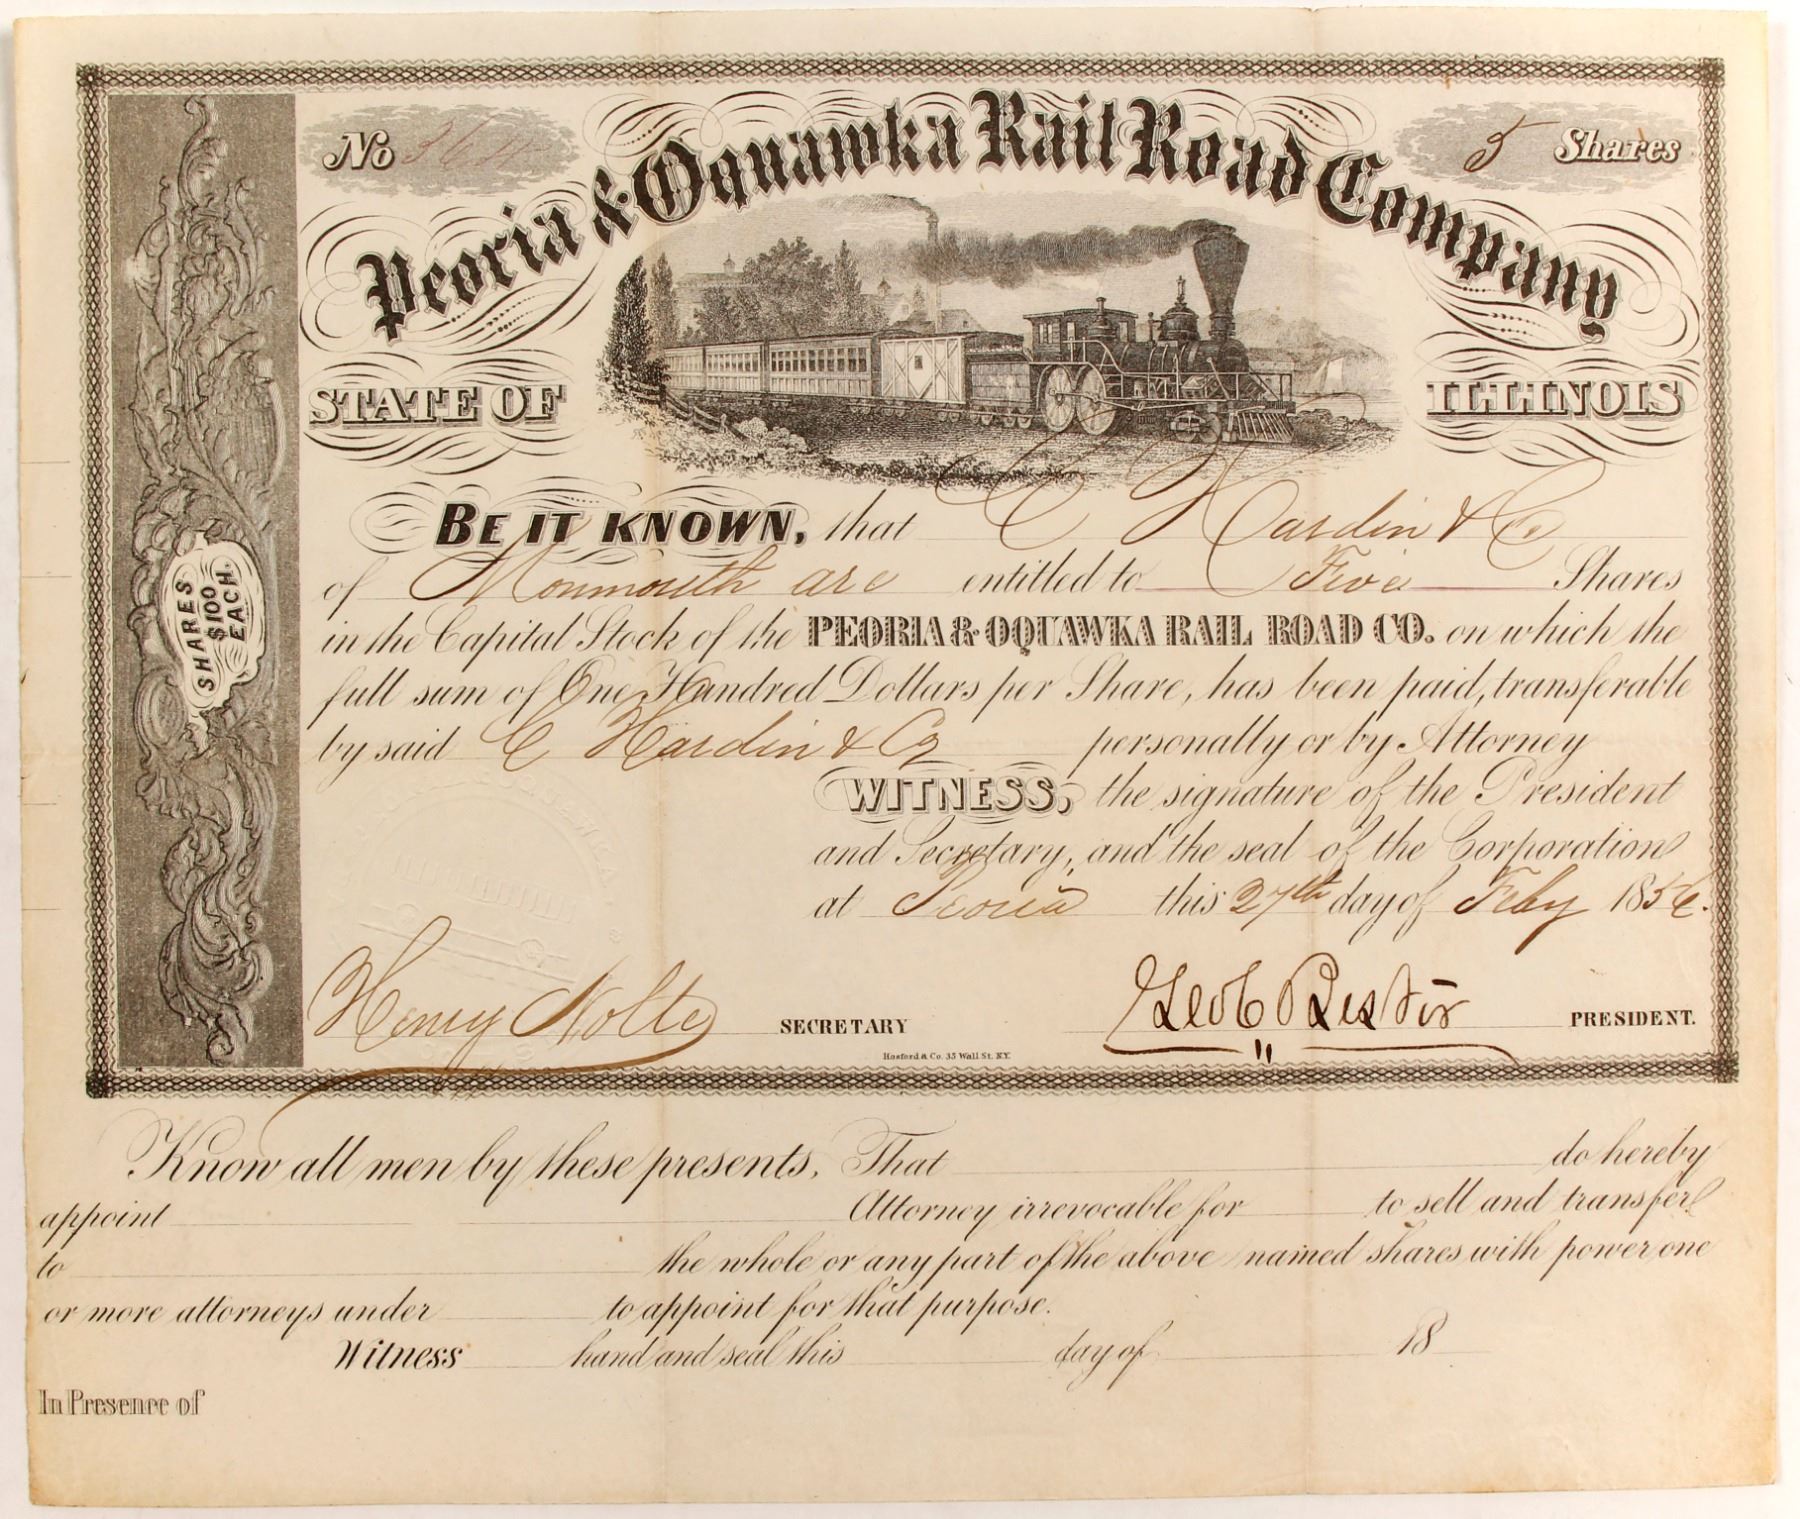 No
5 Shares
Peoria & Oquawka Rail Road Company
STATE OF
ILLINOIS
SHARES
$100
EACH.
BE IT KNOWN, that C Hardin & Co
of Monmouth are entitled to Five Shares
in the Capital Stock of the PEORIA & OQUAWKA RAIL ROAD CO. on which the
full sum of One Hundred Dollars per Share, has been paid, transferable
by said C Hardin & Co personally or by Attorney
WITNESS, the signature of the President
and Secretary, and the seal of the Corporation
at Peoria this 27th day of Feby 1856.
Henry Nolte SECRETARY
Geo C Bestor PRESIDENT.
Hosford & Co. 35 Wall St. N.Y.
Know all men by these presents, That do hereby
appoint Attorney irrevocable for to sell and transfer
to the whole or any part of the above named shares with power one
or more attorneys under to appoint for that purpose.
Witness hand and seal this day of 18
In Presence of